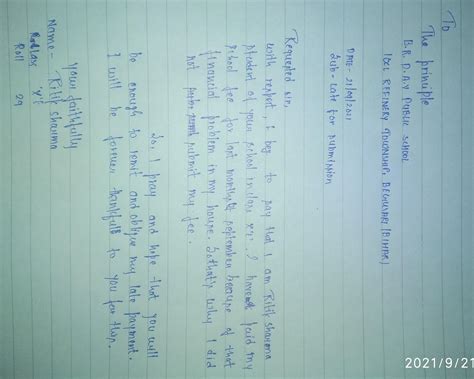 To
The principle
B.R. D.A.V PUBLIC SCHOOL
IOCL REFINERY TOWNSHIP, BEGUSARAI (BIHAR)
DATE- 21/09/2021
Sub- Late fee submission
Requested sir,
with respect, I beg to pay that I am Ritik sharma
student of your school in class I have paid my
school fee for last month september because of that
financial problem in my house. So that's why I did
not submit my fee.
So, I pray and hope that you will
be enough to remit and oblige my late payment.
I will be forever thankfull to you for this.
Your faithfully
Name- Ritik sharma
class
Roll 29
2021/9/21